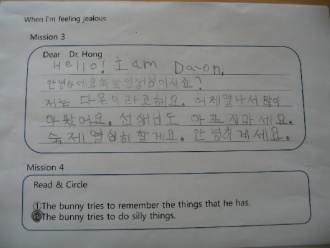 When I'm feeling jealous
Mission 3
Dear Dr. Hong
Hello! I am Da-on.
안녕하세요
저는 다온이라고해요. 어제 열나서 많이
아팠어요. 선생님도 아프지마세요.
숙제 열심히 할게요. 안녕히계세요.
Mission 4
Read & Circle
①The bunny tries to remember the things that he has.
②The bunny tries to do silly things.